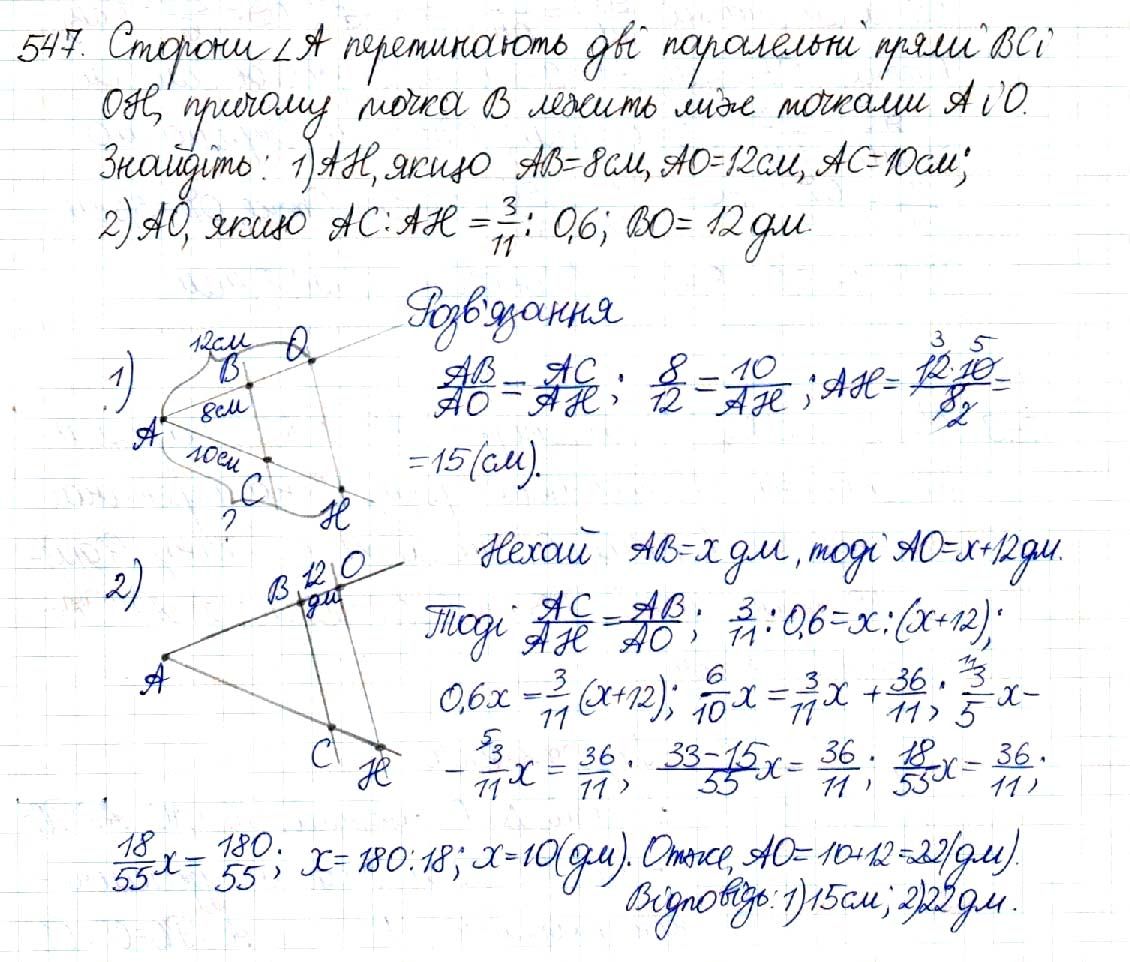 547. Сторони ∠A перетинають дві паралельні прямі BC і
OH, причому точка B лежить між точками A і O.
Знайдіть: 1) AH, якщо AB=8см, AO=12см, AC=10см;
2) AO, якщо AC:AH = 3/11 : 0,6; BO = 12 дм.
Розв'язання
1)
12см
O
B
8см
A
10см
C
?
H
AB/AO = AC/AH; 8/12 = 10/AH; AH = 12·10/8 =
3 5 2
=15(см).
2)
B 12 дм O
A
C
H
Нехай AB=x дм, тоді AO=x+12дм.
Тоді AC/AH = AB/AO; 3/11 : 0,6=x:(x+12);
0,6x = 3/11 (x+12); 6/10 x = 3/11 x + 36/11; 11 3/5 x -
- 5 3/11 x = 36/11; 33-15/55 x = 36/11; 18/55 x = 36/11;
18/55 x = 180/55; x = 180:18; x = 10(дм). Отже, AO = 10+12=22(дм).
Відповідь: 1) 15см; 2) 22дм.